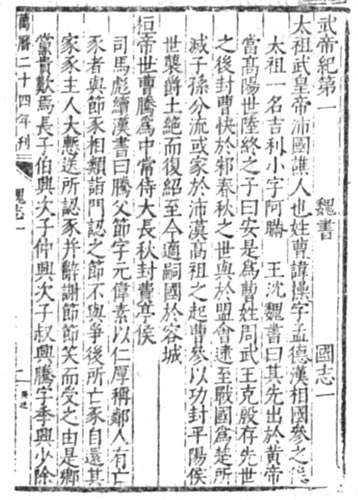 武帝紀第一 魏書 國志一
太祖武皇帝沛國譙人也姓曹諱操字孟德漢相國參之後
太祖一名吉利小字阿瞞 王沈魏書曰其先出於黃帝
當高陽世陸終之子曰安是爲曹姓周武王克殷存先世
之後封曹俠於邾春秋之世與於盟會逮至戰國爲楚所
滅子孫分流或家於沛漢高祖之起曹參以功封平陽侯
世襲爵土絕而復紹至今適嗣國於容城
桓帝世曹騰爲中常侍大長秋封費亭侯
司馬彪續漢書曰騰父節字元偉素以仁厚稱鄰人有亡
豕者與節豕相類詣門認之節不與爭後所亡豕自還其
家豕主人大慙送所認豕并辭謝節節笑而受之由是鄉
黨貴歎焉長子伯興次子仲興次子叔興騰字季興少除
萬曆二十四年刊 魏志一